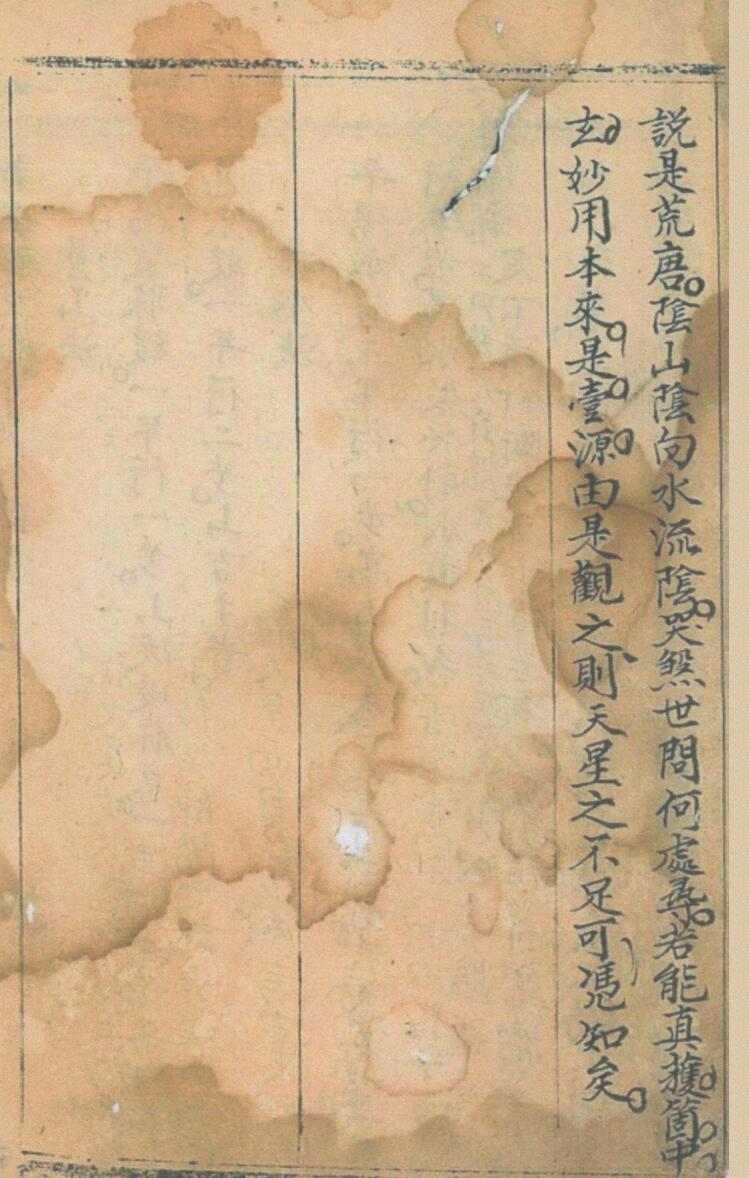 説是荒唐。陰山陰向水流陰。哭煞世問何處尋。若能真獲箇中
玄妙用本來是壹源由是觀之則天星之不足可憑知矣。